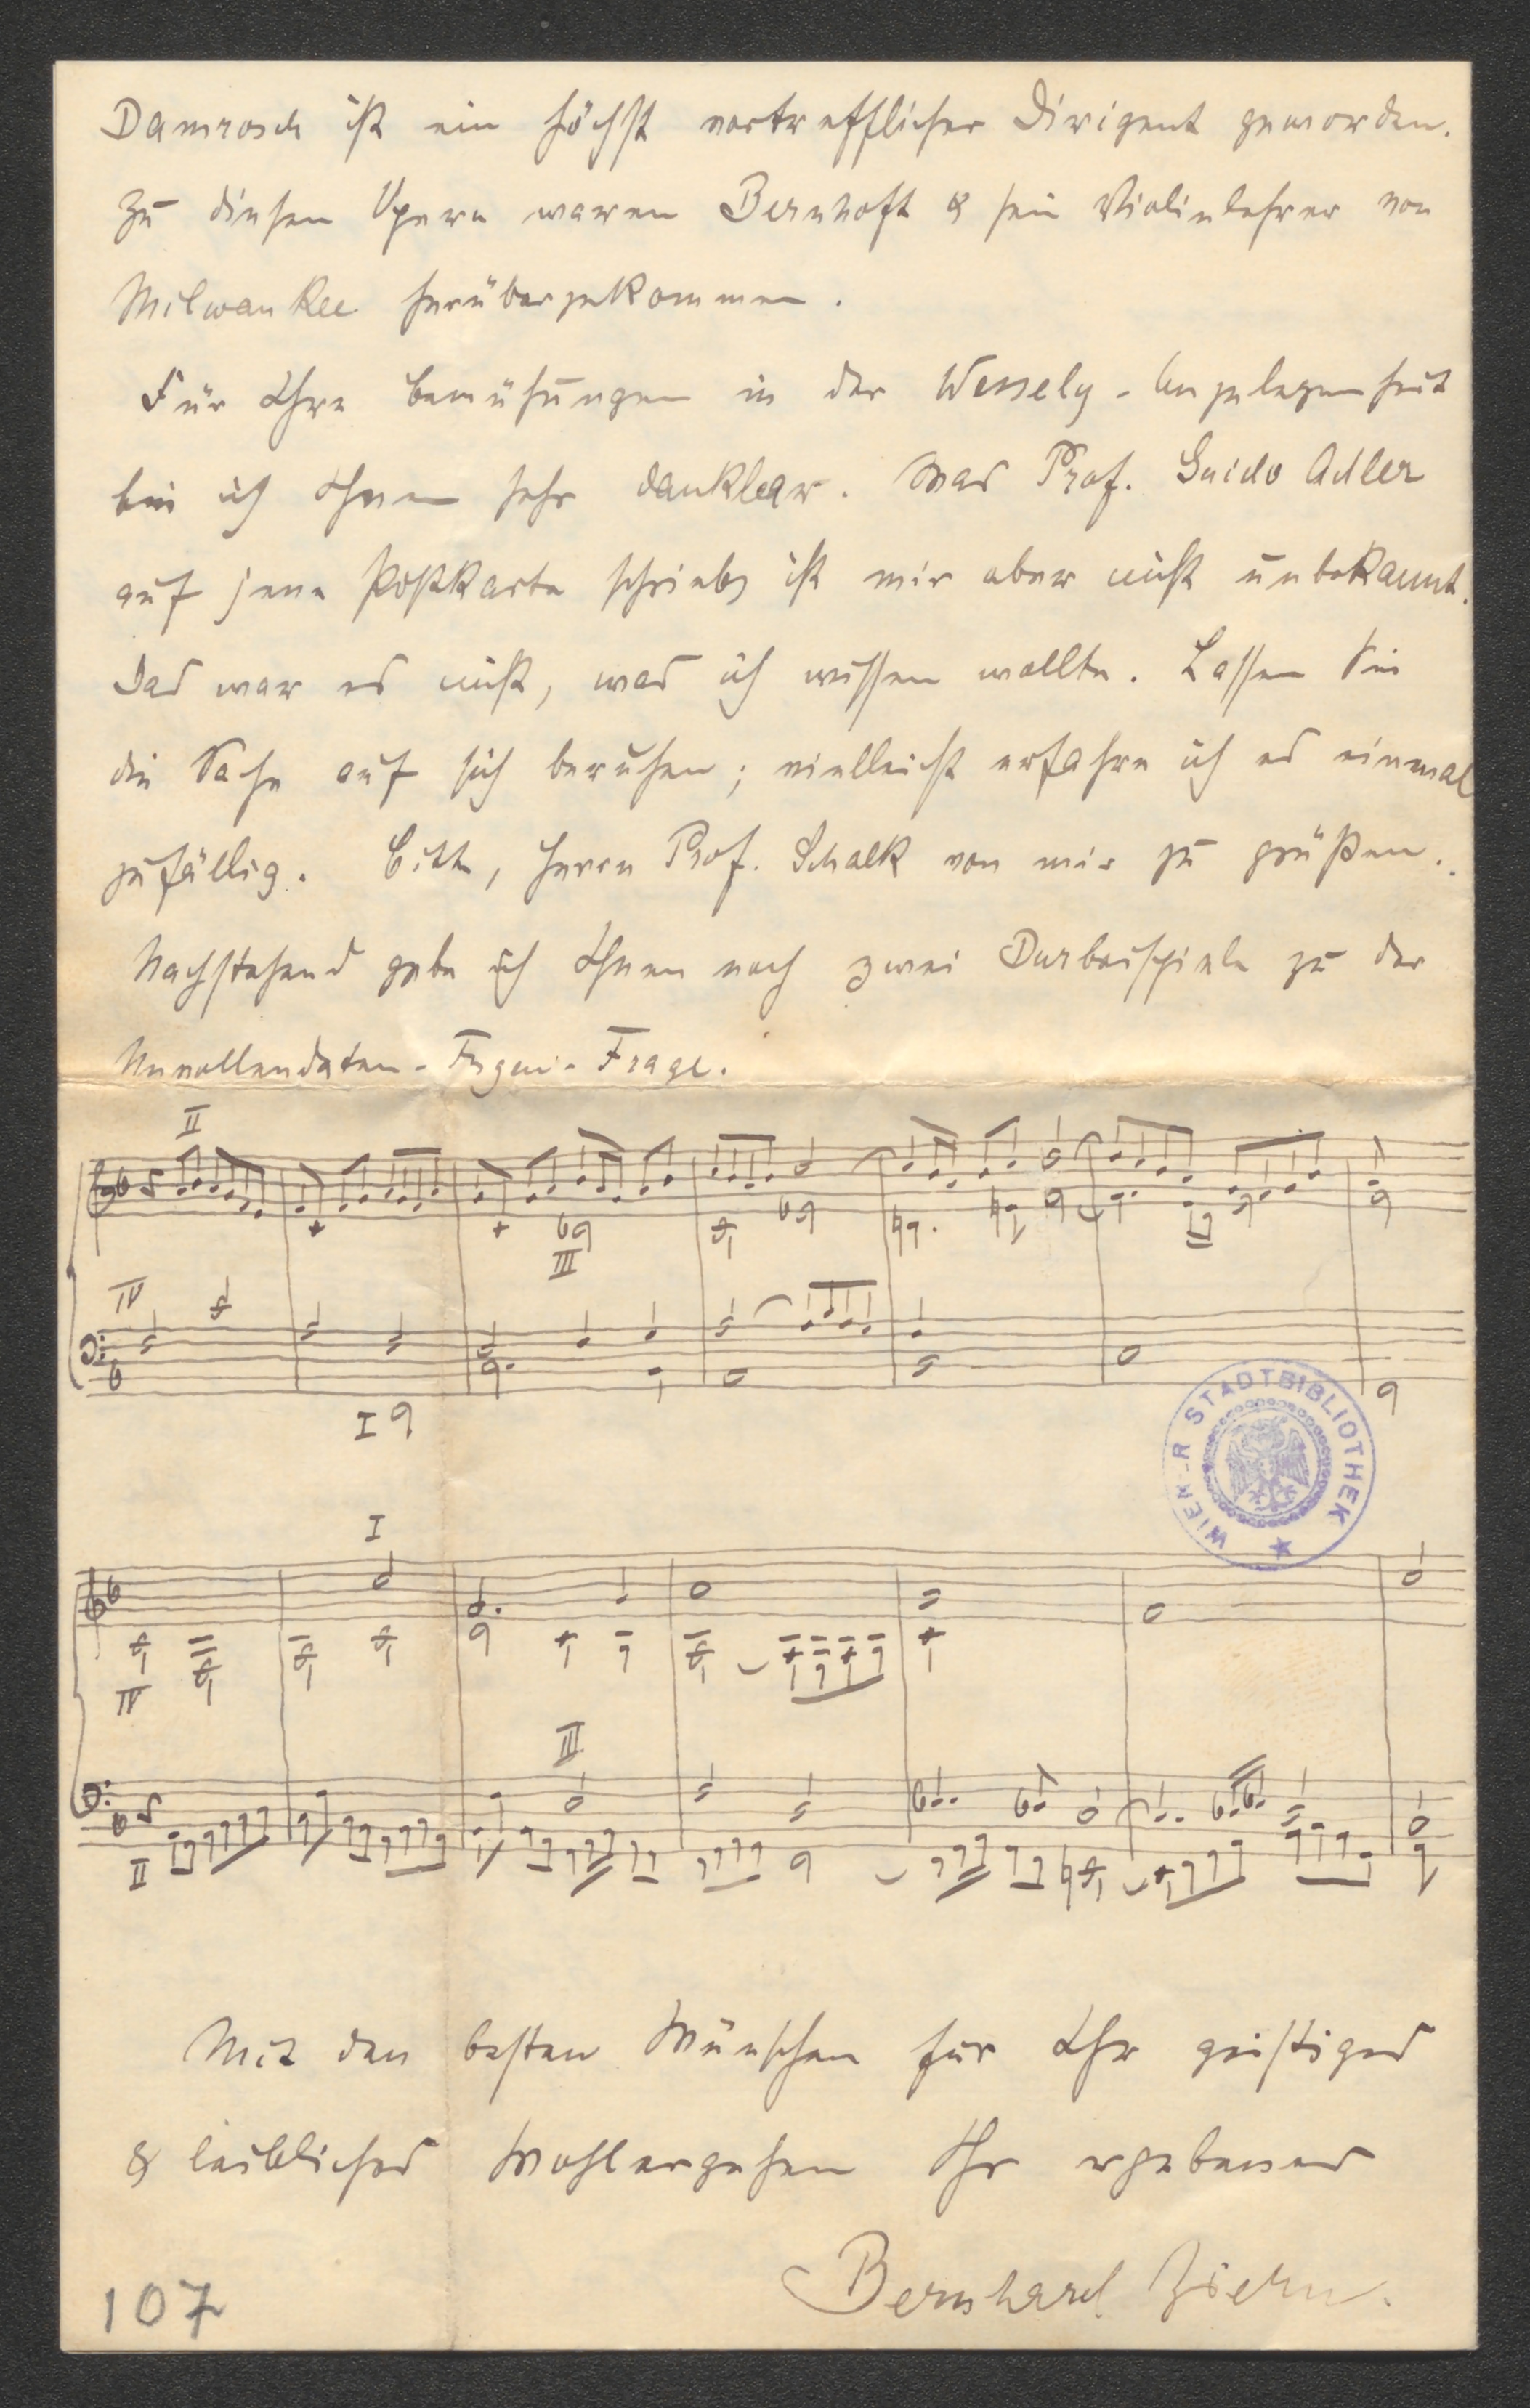 Damrosch ist ein höchst vortrefflicher Dirigent geworden.
Zu diesen Opern waren Bernhoft & sein Violinlehrer von
Milwaukee herübergekommen.
Für Ihre Bemühungen in der Wessely-Angelegenheit
bin ich Ihnen sehr dankbar. Was Prof. Guido Adler
auf jene Postkarte schrieb, ist mir aber nicht unbekannt.
Das war es nicht, was ich wissen wollte. Lassen Sie
die Sache auf sich beruhen; vielleicht erfahre ich es einmal
zufällig. Bitte, Herrn Prof. Schalk von mir zu grüßen.
Nachstehend gebe ich Ihnen noch zwei Durbeispiele zu der
Unvollendeten-Fugen-Frage.
II
III
IV
I
I
IV
III
II
WIENER STADTBIBLIOTHEK
Mit den besten Wünschen für Ihr geistiges
& leibliches Wohlergehen Ihr ergebener
Bernhard Ziehn.
107